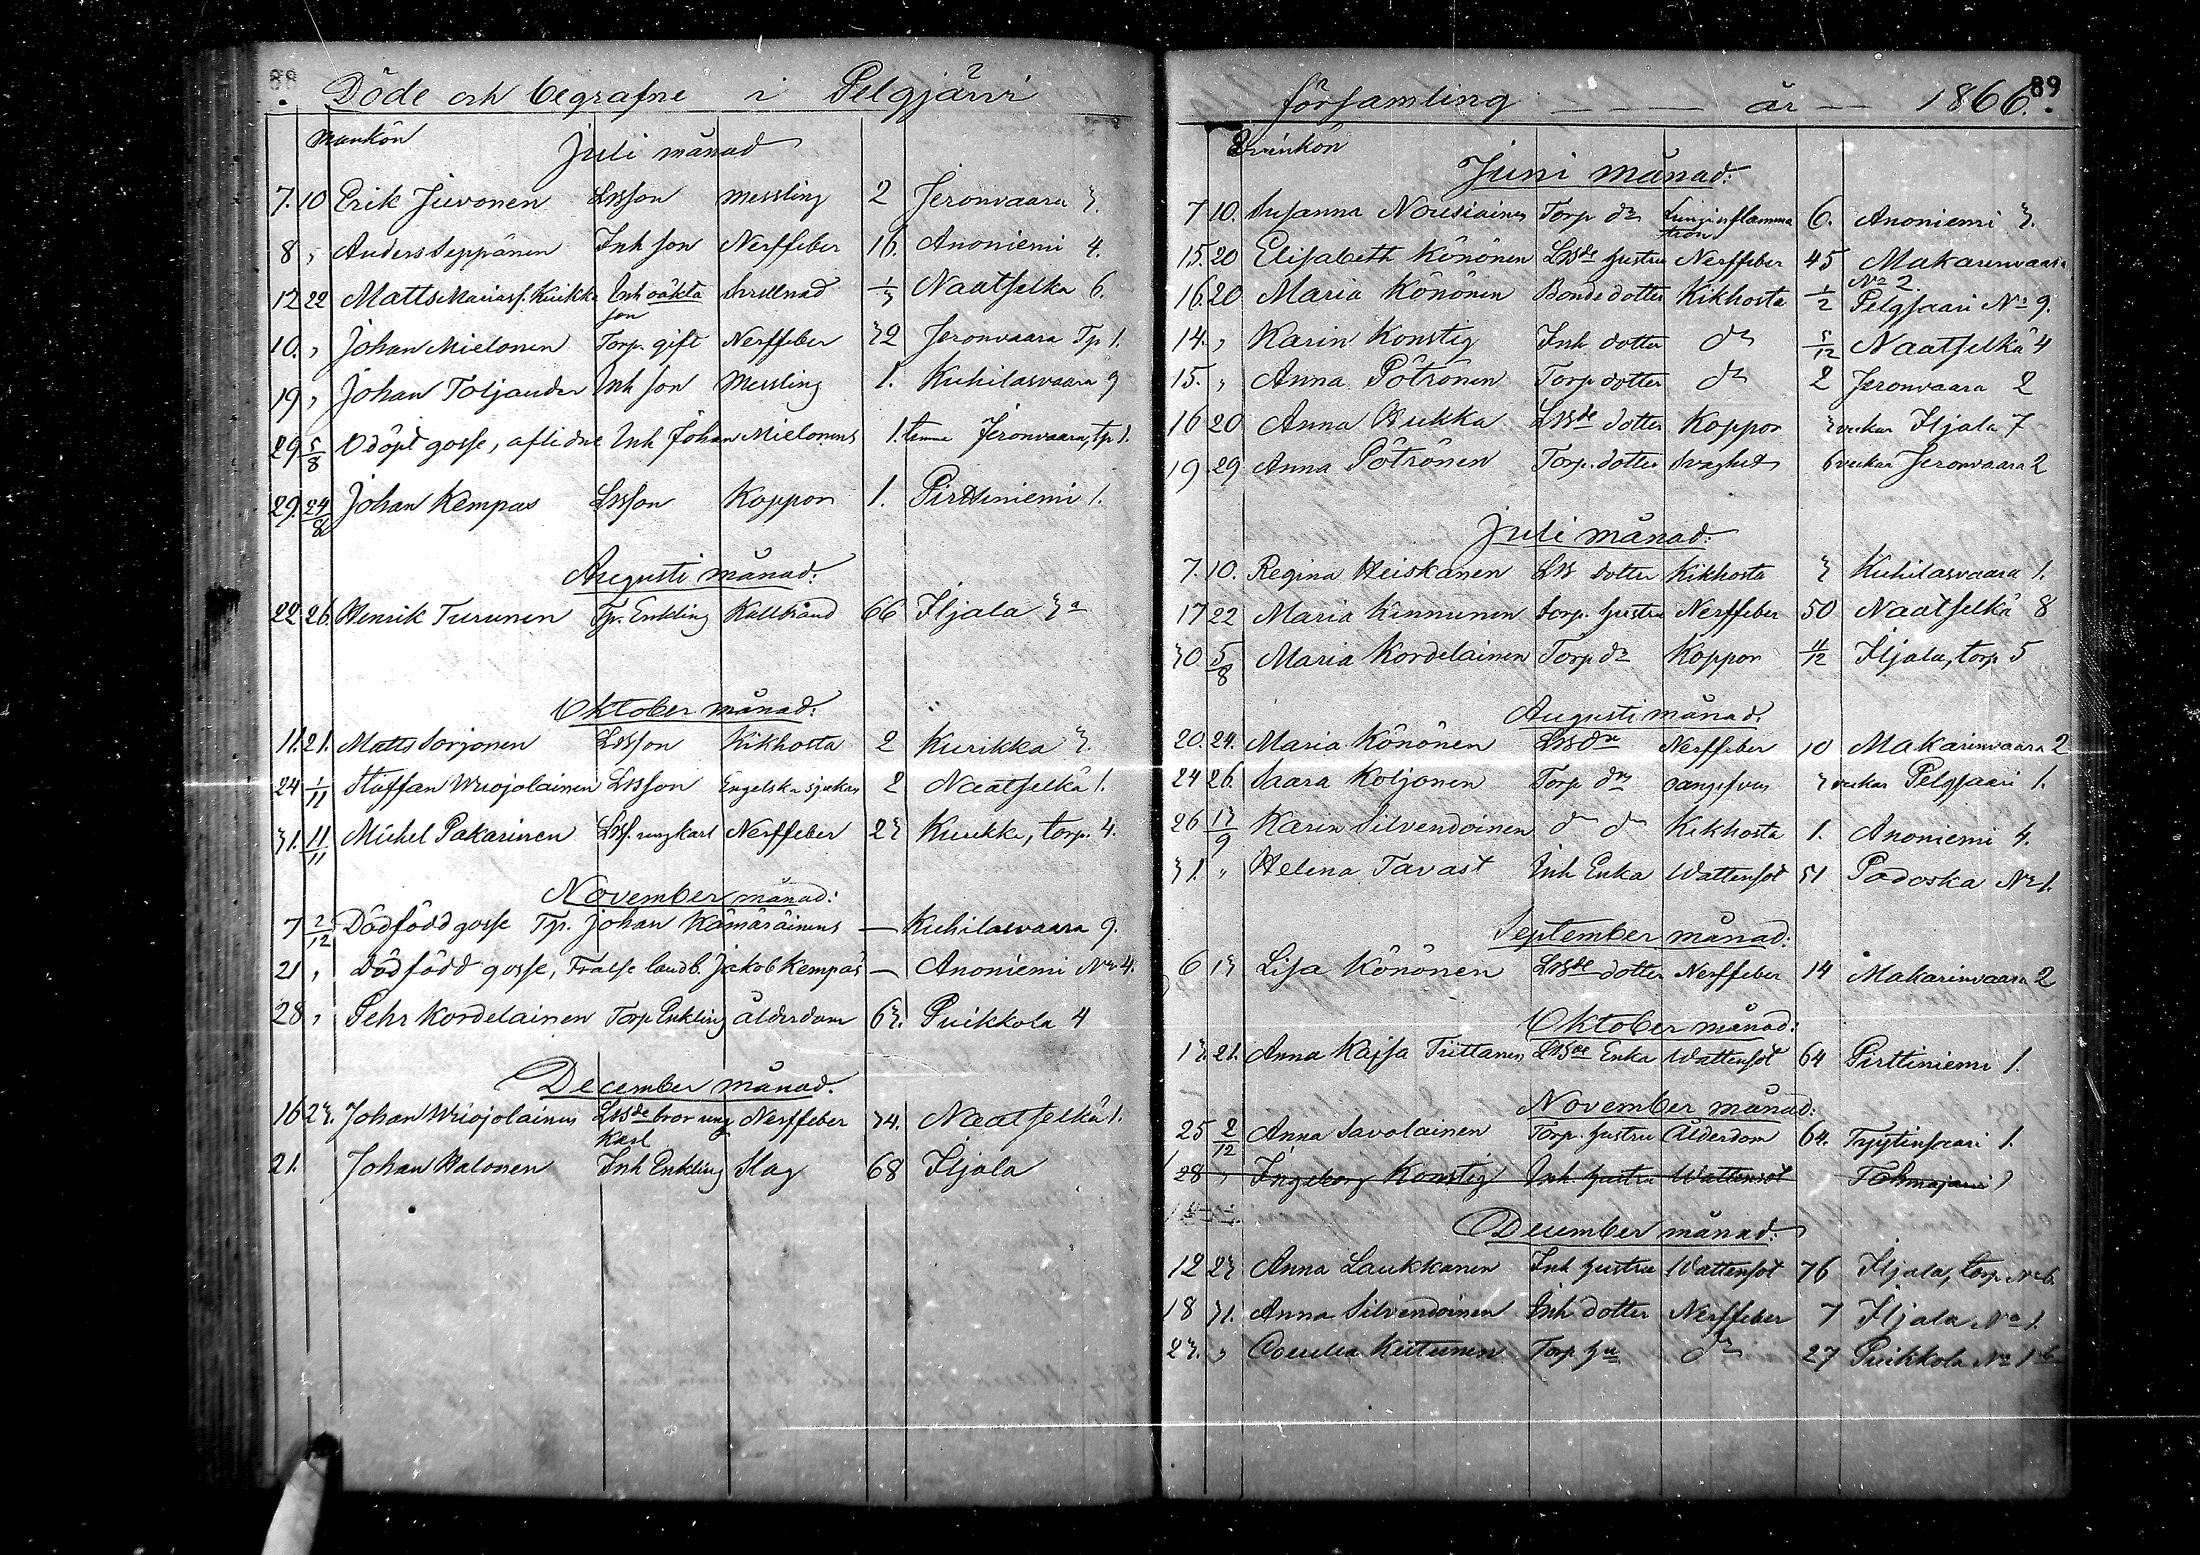 88
Döde och begrafne i Pelgjärvi
mankön
Juli månad
7. 10 Erik Juvonen Lssson Messling 2 Jeronvaara 3.
8 " Anders Seppänen Inh son Nerffeber 16. Anoniemi 4.
12 22 Matts Mariasf. Kuikka Inh oäkta son 1/3 Naatselkä 6.
10. " Johan Mielonen Torp. gift Nerffeber 32 Jeronvaara Tp 1.
19 " Johan Toljander Inh son Messling 1. Kuhilasvaara 9
29 5/8 Odöpt gosse, aflidne Inh Johan Mielonens 1. timme Jeronvaara, tp 1.
29. 24/8 Johan Kempas Lssson Koppor 1. Pirttiniemi 1.
Augusti månad:
22 26 Henrik Turunen Tp. Enkling Kallbrand 66 Iljala 3
Oktober månad:
11. 21. Matts Sorjonen Lssson Kikhosta 2 Kurikka 3.
24 1/11 Staffan Wriojolainen Lssson Engelska sjukan 2 Naatselkä 1.
31. 11/11 Michel Pakarinen Lssf. ungkarl Nerffeber 23 Kurikk, torp. 4.
November månad:
7 2/12 Dödfödd gosse Tp. Johan Kämäräinens — Kuhilasvaara 9.
21 " Dödfödd gosse, Frälse landb. Jakob Kempas — Anoniemi No 4.
28 " Pehr Kordelainen Torp Enkling Ålderdom 63. Puikkola 4
December månad.
16 23. Johan Wriojolainen Lssde bror ung karl Nerffeber 34. Naatselkä 1.
21. Johan Halonen Inh Enkling Slag 68 Iljala
församling — — — år — 1866.
89
Qvinkön
Juni månad:
7 10. Susanna Nousiainen Torp dr Lunginflammation 6. Anoniemi 3.
15. 20 Elisabeth Könönen Lssde hustru Nerffeber 45 Makarinvaara No 2
16. 20 Maria Könönen Bonde dotter Kikhosta 1/2 Pelgsaari No 9.
14. " Karin Konstig Inh dotter do 5/12 Naatselkä 4
15. " Anna Pötrönen Torp dotter do 2 Jeronvaara 2
16 20 Anna Kukka Lssde dotter Koppor 3 veckor Iljala 7
19 29 Anna Pötrönen Torp. dotter Svaghet 6 veckor Jeronvaara 2
Juli månad:
7. 10. Regina Heiskanen Lss dotter Kikhosta 3 Kuhilasvaara 1.
17 22 Maria Kinnunen Torp. hustru Nerffeber 50 Naatselkä 8
30 5/8 Maria Kordelainen Torp dr Koppor 11/12 Iljala, torp 5
Augusti månad.
20. 24. Maria Könönen Lssdr Nerffeber 10 Makarinvaara 2
24 26. Saara Koljonen Torp dr 3 veckor Pelgsaari 1.
26 17/9 Karin Silvendoinen do do Kikhosta 1. Anoniemi 4.
31. " Helena Tavast Inh Enka Wattensot 51 Padoska No 1.
September månad:
6 13 Lisa Könönen Lssde dotter Nerffeber 14 Makarinvaara 2
Oktober månad:
13. 21. Anna Kajsa Tiittanen Lssde Enka Wattensot 64 Pirttiniemi 1.
November månad:
25 2/12 Anna Savolainen Torp. hustru Ålderdom 64. Tyytinsaari 1.
28 " Ingeborg Konstig Inh hustru Wattensot Tohmajärvi
December månad:
12 23 Anna Laukkanen Inh hustru Wattensot 76 Iljala, torp No 6.
18 31. Anna Silvendoinen Inh dotter Nerffeber 7 Iljala No 1.
23. " Kiittunen Torp hu do 27 Puikkola No 1